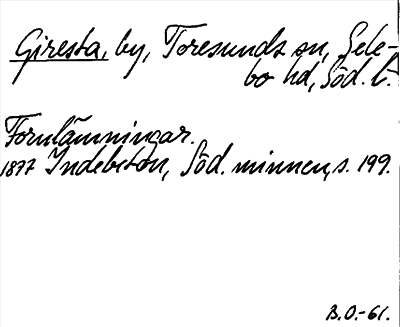 Giresta, by, Toresunds sn, Sele-
bo hd, Söd. l.
Fornlämningar.
1877 Indebetou, Söd. minnen, s. 199.
B.O.-61.